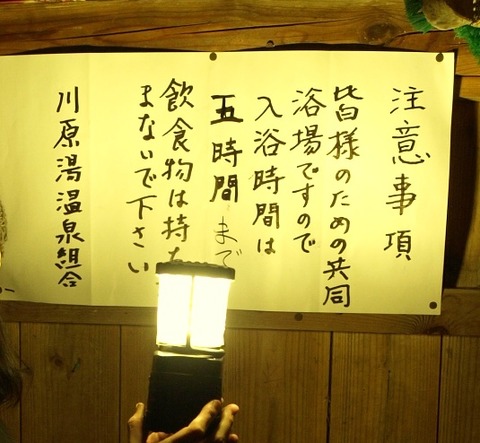 注意事項
皆様のための共同
浴場ですので
入浴時間は
五時間まで
飲食物は持ち
まないで下さい
川原湯温泉組合